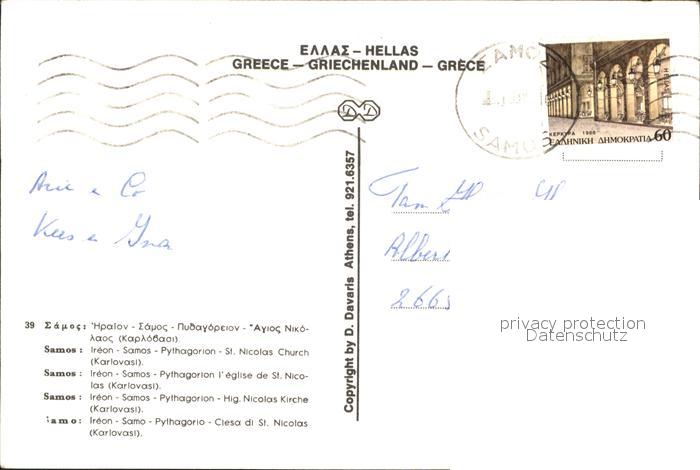 ΕΛΛΑΣ – HELLAS
GREECE – GRIECHENLAND – GRÈCE
ΣΑΜΟΣ
SAMOS
ΚΕΡΚΥΡΑ 1988
ΕΛΛΗΝΙΚΗ ΔΗΜΟΚΡΑΤΙΑ 60
Arie e Co
Kees en Ina
Copyright by D. Davaris Athens, tel. 921.6357
Albers
privacy protection
Datenschutz
39 Σάμος: Ἡραῖον - Σάμος - Πυθαγόρειον - Ἅγιος Νικό-
λαος (Καρλόβασι).
Samos: Iréon - Samos - Pythagorion - St. Nicolas Church
(Karlovasi).
Samos: Iréon - Samos - Pythagorion l'église de St. Nico-
las (Karlovasi).
Samos: Iréon - Samos - Pythagorion - Hig. Nicolas Kirche
(Karlovasi).
amo: Iréon - Samo - Pythagorio - Ciesa di St. Nicolas
(Karlovasi).